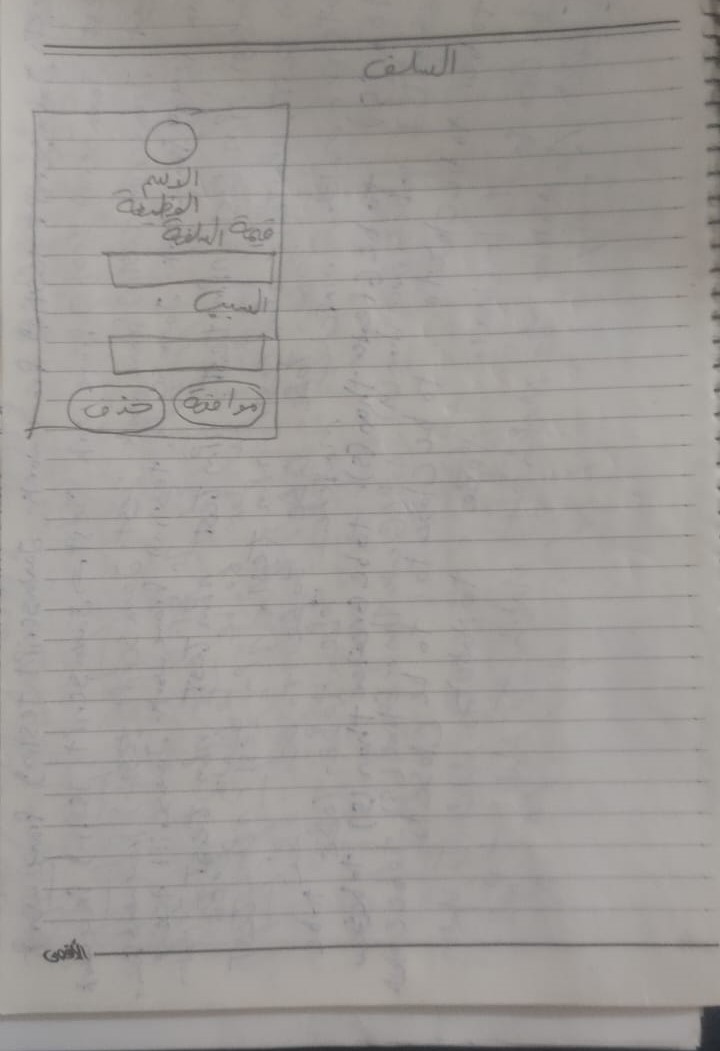 السلف
الاسم
الوظيفة
قيمة السلفة
السبب
موافقة حذف
الأقصى